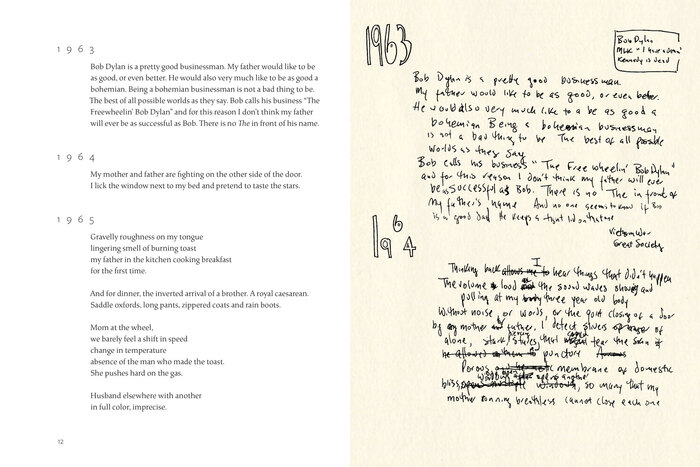 1963
Bob Dylan is a pretty good businessman. My father would like to be
as good, or even better. He would also very much like to be as good a
bohemian. Being a bohemian businessman is not a bad thing to be.
The best of all possible worlds as they say. Bob calls his business “The
Freewheelin’ Bob Dylan” and for this reason I don’t think my father
will ever be as successful as Bob. There is no The in front of his name.
1964
My mother and father are fighting on the other side of the door.
I lick the window next to my bed and pretend to taste the stars.
1965
Gravelly roughness on my tongue
lingering smell of burning toast
my father in the kitchen cooking breakfast
for the first time.
And for dinner, the inverted arrival of a brother. A royal caesarean.
Saddle oxfords, long pants, zippered coats and rain boots.
Mom at the wheel,
we barely feel a shift in speed
change in temperature
absence of the man who made the toast.
She pushes hard on the gas.
Husband elsewhere with another
in full color, imprecise.
12
1963
Bob Dylan
MLK "I have a dream"
Kennedy is dead
Bob Dylan is a pretty good businessman
My father would like to be as good, or even better.
He would also very much like to be as good a
bohemian Being a bohemian businessman
is not a bad thing to be The best of all possible
worlds as they say
Bob calls his business "The Free wheelin' Bob Dylan"
and for this reason I don't think my father will ever
be as successful as Bob. There is no The in front of
my father's name And no one seems to know if Bob
is a good dad He keeps a tight lid on that one
Vietnam War
Great Society
1964
Thinking back I hear things that didn't happen
The volume loud the sound waves shoving and
pulling at my three year old body
Without noise or words, or the quiet closing of a door
by my mother father, I detect slivers of
alone, stark that tear the skin
puncture
Porous membrane of domestic
bliss, windows, so many that my
mother running breathless cannot close each one